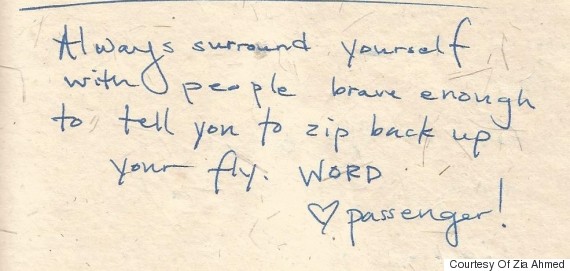 Always surround yourself
with people brave enough
to tell you to zip back up
your fly. WORD
♡ passenger!
Courtesy Of Zia Ahmed